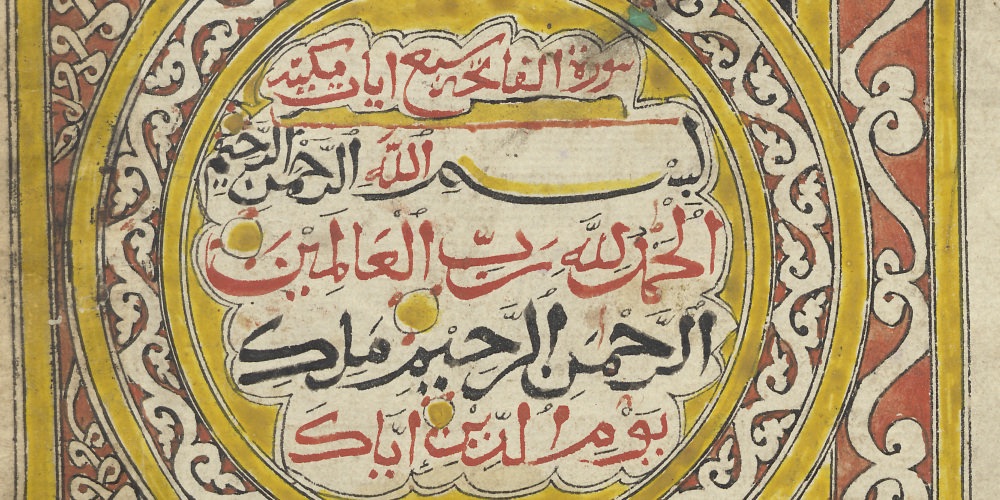 سورة الفاتحة سبع ايات مكية
بِسْمِ اللّٰه الرَّحْمٰنِ الرَّحِيْمِ
اَلْحَمْدُ لِلّٰهِ رَبِّ الْعَالَمِيْنَ
الرَّحْمٰنِ الرَّحِيْمِ مَلِكِ
يَوْمِ الدِّيْنِ اِيَّاكَ